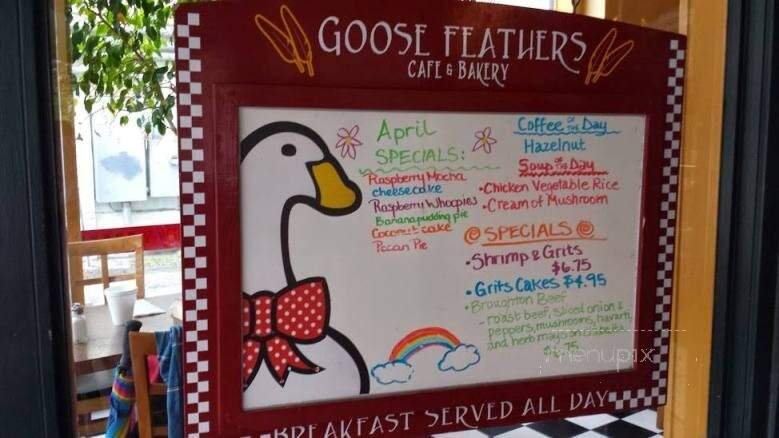 GOOSE FEATHERS
CAFE & BAKERY
April
SPECIALS:
Raspberry Mocha
cheesecake
Raspberry Whoopies
Banana pudding pie
Coconut cake
Pecan Pie
Coffee OF THE Day
Hazelnut
Soup OF THE Day
• Chicken Vegetable Rice
• Cream of Mushroom
SPECIALS
• Shrimp & Grits
$6.75
• Grits Cakes $4.95
• Broughton Beef
- roast beef, sliced onion &
peppers, mushrooms, havarti,
and herb mayo on a
menupix
BREAKFAST SERVED ALL DAY